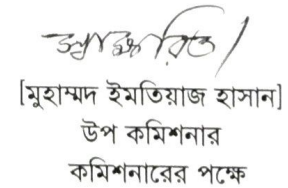 স্বাক্ষরিত/
[মুহাম্মদ ইমতিয়াজ হাসান]
উপ কমিশনার
কমিশনারের পক্ষে